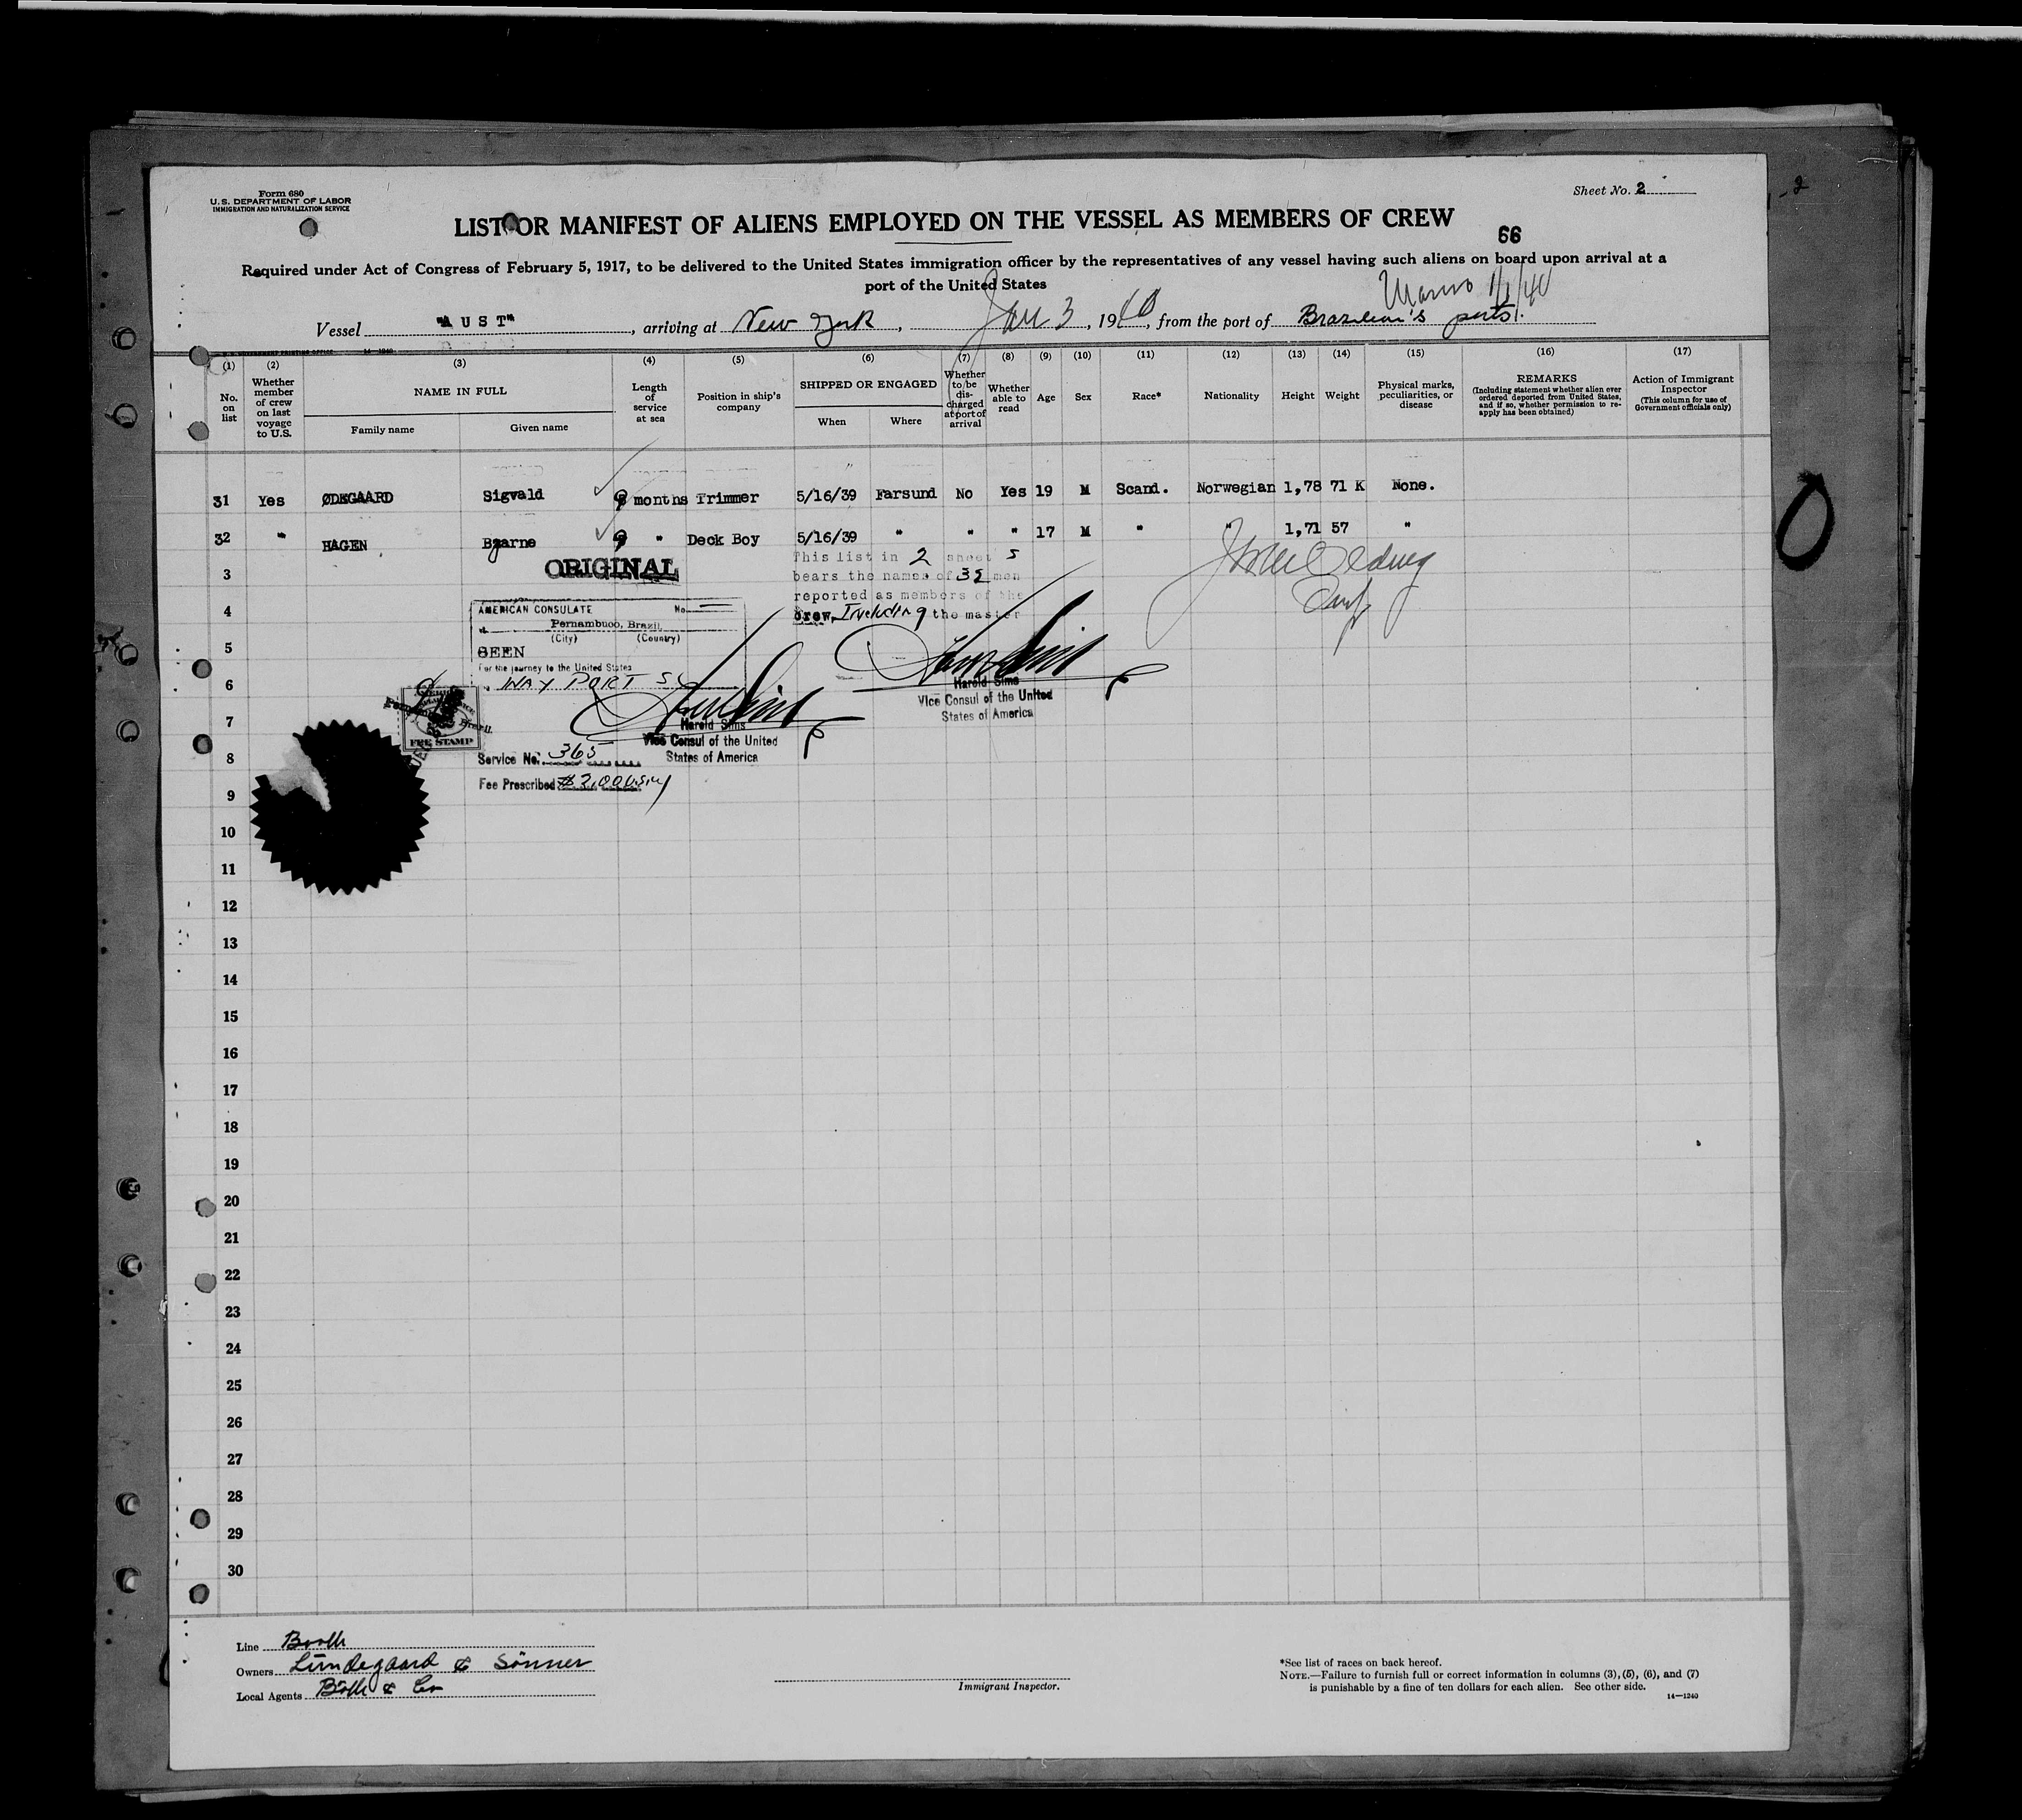 Form 680
U.S. DEPARTMENT OF LABOR
IMMIGRATION AND NATURALIZATION SERVICE
Sheet No. 2
LIST OR MANIFEST OF ALIENS EMPLOYED ON THE VESSEL AS MEMBERS OF CREW
66
Required under Act of Congress of February 5, 1917, to be delivered to the United States immigration officer by the representatives of any vessel having such aliens on board upon arrival at a
port of the United States
1/1/40
Vessel "AUST", arriving at New York, Jan 3, 1940, from the port of Brazilian's ports.
(1) (2) (3) (4) (5) (6) (7) (8) (9) (10) (11) (12) (13) (14) (15) (16) (17)
No. on list
Whether member of crew on last voyage to U.S.
NAME IN FULL
Family name
Given name
Length of service at sea
Position in ship's company
SHIPPED OR ENGAGED
When
Where
Whether to be discharged at port of arrival
Whether able to read
Age
Sex
Race*
Nationality
Height
Weight
Physical marks, peculiarities, or disease
REMARKS
(Including statement whether alien ever ordered deported from United States, and if so, whether permission to reapply has been obtained)
Action of Immigrant Inspector
(This column for use of Government officials only)
31 Yes ØDEGAARD Sigvald 9 months Trimmer 5/16/39 Farsund No Yes 19 M Scand. Norwegian 1,78 71 K None.
32 " HAGEN Bjarne 9 " Deck Boy 5/16/39 " " " 17 M " " 1,71 57 "
ORIGINAL
This list in 2 sheets
bears the names of 32 men
reported as members of the
crew, Including the master
AMERICAN CONSULATE No. —
Pernambuco, Brazil
(City) (Country)
SEEN
For the journey to the United States
WAY PORT
Harold Sims
Vice Consul of the United
States of America
Harold Sims
Vice Consul of the United
States of America
FEE STAMP
Service No. 365
Fee Prescribed $2.00
3
4
5
6
7
8
9
10
11
12
13
14
15
16
17
18
19
20
21
22
23
24
25
26
27
28
29
30
Line Booth
Owners Lundegaard & Sönner
Local Agents Booth & Co
Immigrant Inspector.
*See list of races on back hereof.
NOTE.—Failure to furnish full or correct information in columns (3), (5), (6), and (7)
is punishable by a fine of ten dollars for each alien. See other side.
14—1240